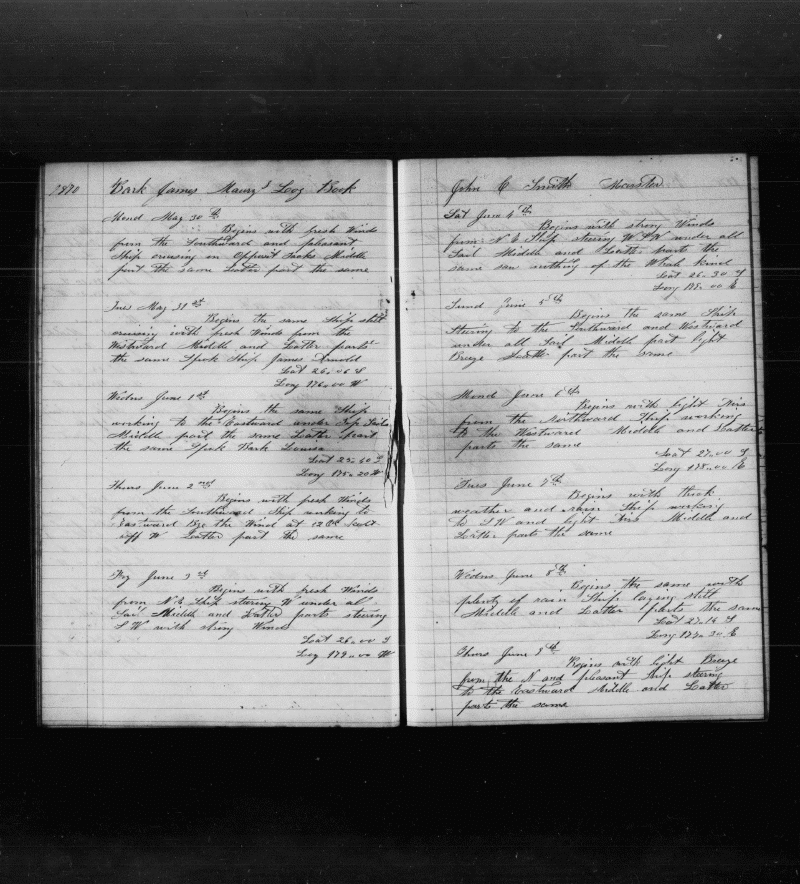 1870 Bark James Maury's Log Book
Mond May 30th
Begins with fresh Winds
from the Southward and pleasant
Ship cruising on Opposit Tacks Middle
part the same Latter part the same
Tues May 31st
Begins the same Ship still
cruising with fresh Winds from the
Westward Middle and Latter parts
the same Spok Ship James Arnold
Lat 26.06 S
Long 176.00 W
Widns June 1st
Begins the same Ship
working to the Eastward under Top Sails
Middle part the same Latter part
the same Spok Bark Louisa
Lat 25.40 S
Long 175.20 W
Thurs June 2nd
Begins with fresh Winds
from the Southward Ship working to
Eastward Bye the Wind at 12 Ock
off W Latter part the same
Fry June 3rd
Begins with fresh Winds
from N.E Ship steering W under all
Sail Middle and Latter parts steering
S W with strong Winds
Lat 26.00 S
Log 179.00 W
John C Smith Master
Sat June 4th
Begins with strong Winds
from N E Ship steering W S W under all
Sail Middle and Latter parts the
same saw nothing of the Whale kind
Lat 26.30 S
Long 178.00 E
Sund June 5th
Begins the same Ship
Steering to the Southward and Westward
under all Sail Middle part light
Breeze Latter part the same
Mond June 6th
Begins with light Airs
from the Northward Ship working
to the Westward Middle and Latter
parts the same
Lat 27.00 S
Long 178.00 E
Tues June 7th
Begins with thick
weather and rain Ship working
to S W and light Airs Middle and
Latter parts the same
Widns June 8th
Begins the same with
plenty of rain Ship laying still
Middle and Latter parts the same
Lat 27.15 S
Long 177.30 E
Thurs June 9th
Begins with light Breeze
from the N and pleasant Ship steering
to the Eastward Middle and Latter
parts the same